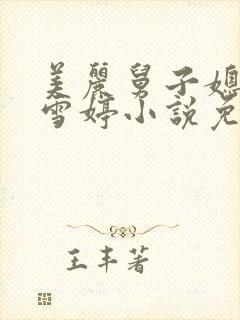 美麗舅子媳
雪婷小說免
王丰著